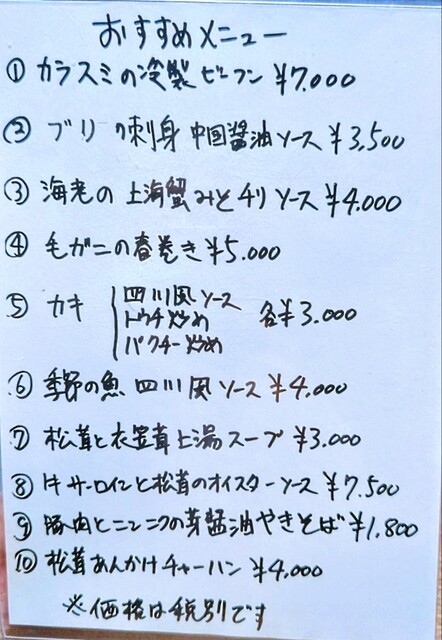 おすすめメニュー
① カラスミの冷製ビーフン ¥7.000
② ブリの刺身 中国醤油ソース ¥3,500
③ 海老の上海蟹みそチリソース ¥4.000
④ 毛ガニの春巻き ¥5.000
⑤ カキ 四川風ソース
トウチ炒め 各¥3.000
パクチー炒め
⑥ 季節の魚 四川風ソース ¥4,000
⑦ 松茸と衣笠茸上湯スープ ¥3.000
⑧ サーロインと松茸のオイスターソース ¥7,500
⑨ 豚肉とニンニクの芽醤油やきそば ¥1,800
⑩ 松茸あんかけチャーハン ¥4,000
※価格は税別です